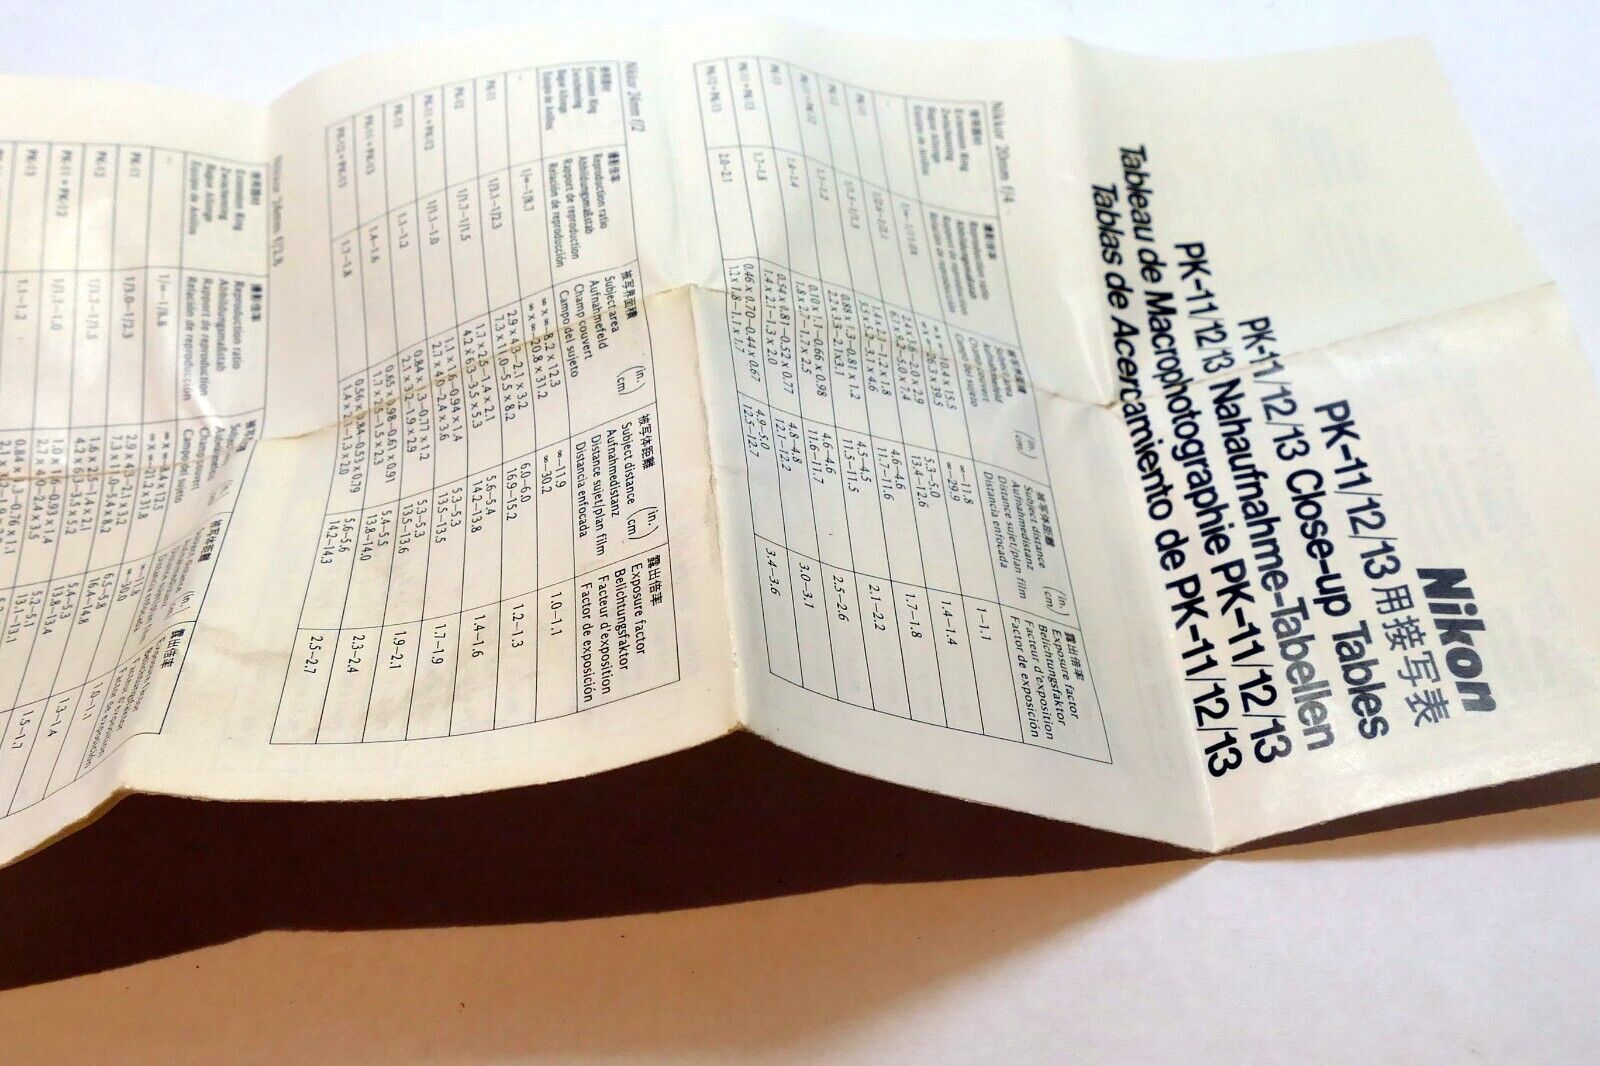 Nikon
PK-11/12/13用接写表
PK-11/12/13 Close-up Tables
PK-11/12/13 Nahaufnahme-Tabellen
Tableau de Macrophotographie PK-11/12/13
Tablas de Acercamiento de PK-11/12/13
Nikkor 20mm f/4
Extension Ring Reproduction ratio Subject area (in.) Subject distance (in.) Exposure factor
Zwischenring Abbildungsmaßstab Aufnahmefeld (cm) Aufnahmedistanz (cm) Belichtungsfaktor
Bague Allonge Rapport de reproduction Champ couvert Distance sujet/plan film Facteur d'exposition
Relación de reproducción Campo del sujeto Distancia enfocada Factor de exposición
∞ x ∞–10.4 x 15.5 ∞–11.8 1–1.1
∞ x ∞–26.3 x 39.5 ∞–29.9
PK-11 1/2.6–1/2.1 2.4 x 3.6–2.0 x 2.9 5.3–5.0 1.4–1.4
5.0 x 7.4 13.4–12.6
PK-12 1/1.5–1/1.3 1.4 x 2.1–1.2 x 1.8 4.6–4.6 1.7–1.8
3.5 x 5.2–3.1 x 4.6 11.7–11.6
PK-11 + PK-12 1.1–1.2 0.88 x 1.3–0.81 x 1.2 4.5–4.5 2.1–2.2
2.2 x 3.3–2.1 x 3.1 11.5–11.5
PK-13 1.4–1.4 0.66 x 0.98 4.6–4.6 2.5–2.6
1.8 x 2.7–1.7 x 2.5 11.6–11.7
PK-11 + PK-13 1.7–1.8 0.54 x 0.81–0.52 x 0.77 4.8–4.8 3.0–3.1
1.4 x 2.1–1.3 x 2.0 12.1–12.2
PK-12 + PK-13 2.0–2.1 0.46 x 0.70–0.44 x 0.67 4.9–5.0 3.4–3.6
1.2 x 1.8–1.1 x 1.7 12.5–12.7
Nikkor 24mm f/2
撮影倍率 被写界面積 被写体距離 露出倍率
Extension Ring Reproduction ratio Subject area (in.) Subject distance (in.) Exposure factor
Zwischenring Abbildungsmaßstab Aufnahmefeld (cm) Aufnahmedistanz (cm) Belichtungsfaktor
Bague Allonge Rapport de reproduction Champ couvert Distance sujet/plan film Facteur d'exposition
Relación de reproducción Campo del sujeto Distancia enfocada Factor de exposición
– 1/∞–1/8.7 ∞ x ∞–8.2 x 12.3 ∞–11.9 1.0–1.1
∞ x ∞–20.8 x 31.2 ∞–30.2
PK-11 1/3.1–1/2.3 2.9 x 4.3–2.1 x 3.2 6.0–6.0 1.2–1.3
7.3 x 11.0–5.5 x 8.2 16.9–15.2
PK-12 1/1.7–1/1.5 1.7 x 2.5–1.4 x 2.1 5.6–5.4 1.4–1.6
4.2 x 6.3–3.5 x 5.3 14.2–13.8
PK-11 + PK-12 1/1.1–1.0 1.1 x 1.6–0.94 x 1.4 5.3–5.3 1.7–1.9
2.7 x 4.0–2.4 x 3.6 13.5–13.5
PK-13 1.1–1.2 0.84 x 1.3–0.77 x 1.2 5.3–5.3 1.9–2.1
2.1 x 3.2–1.9 x 2.9 13.5–13.6
PK-11 + PK-13 1.4–1.6 0.65 x 0.98–0.61 x 0.91 5.4–5.5 2.3–2.4
1.7 x 2.5–1.5 x 2.3 13.8–14.0
PK-12 + PK-13 1.7–1.8 0.56 x 0.84–0.53 x 0.79 5.6–5.6 2.5–2.7
1.4 x 2.1–1.3 x 2.0 14.2–14.3
Nikkor 24mm f/2.8
Extension Ring Reproduction ratio (in.) (in.)
Zwischenring Abbildungsmaßstab
Bague Allonge Rapport de reproduction Champ couvert
Relación de reproducción Campo del sujeto
– 1/∞–1/8.8 ∞ x ∞–8.4 x 12.5 ∞–11.8 1.0–1.1
∞ x ∞–21.2 x 31.8 ∞–30.0
PK-11 1/3.0–1/2.3 2.9 x 4.3–2.1 x 3.2 6.5–5.8 1.3–1.4
7.3 x 11.0–5.4 x 8.2 16.4–14.8
PK-12 1/1.7–1/1.5 1.6 x 2.5–1.4 x 2.1 5.4–5.3 1.5–1.7
4.2 x 6.3–3.5 x 5.2 13.8–13.4
PK-11 + PK-12 1/1.1–1.0 1.0 x 1.6–0.93 x 1.4 5.2–5.1
2.7 x 4.0–2.4 x 3.5 13.1–13.1
PK-13 1.1–1.2 0.84 x 1.3–0.76 x 1.1